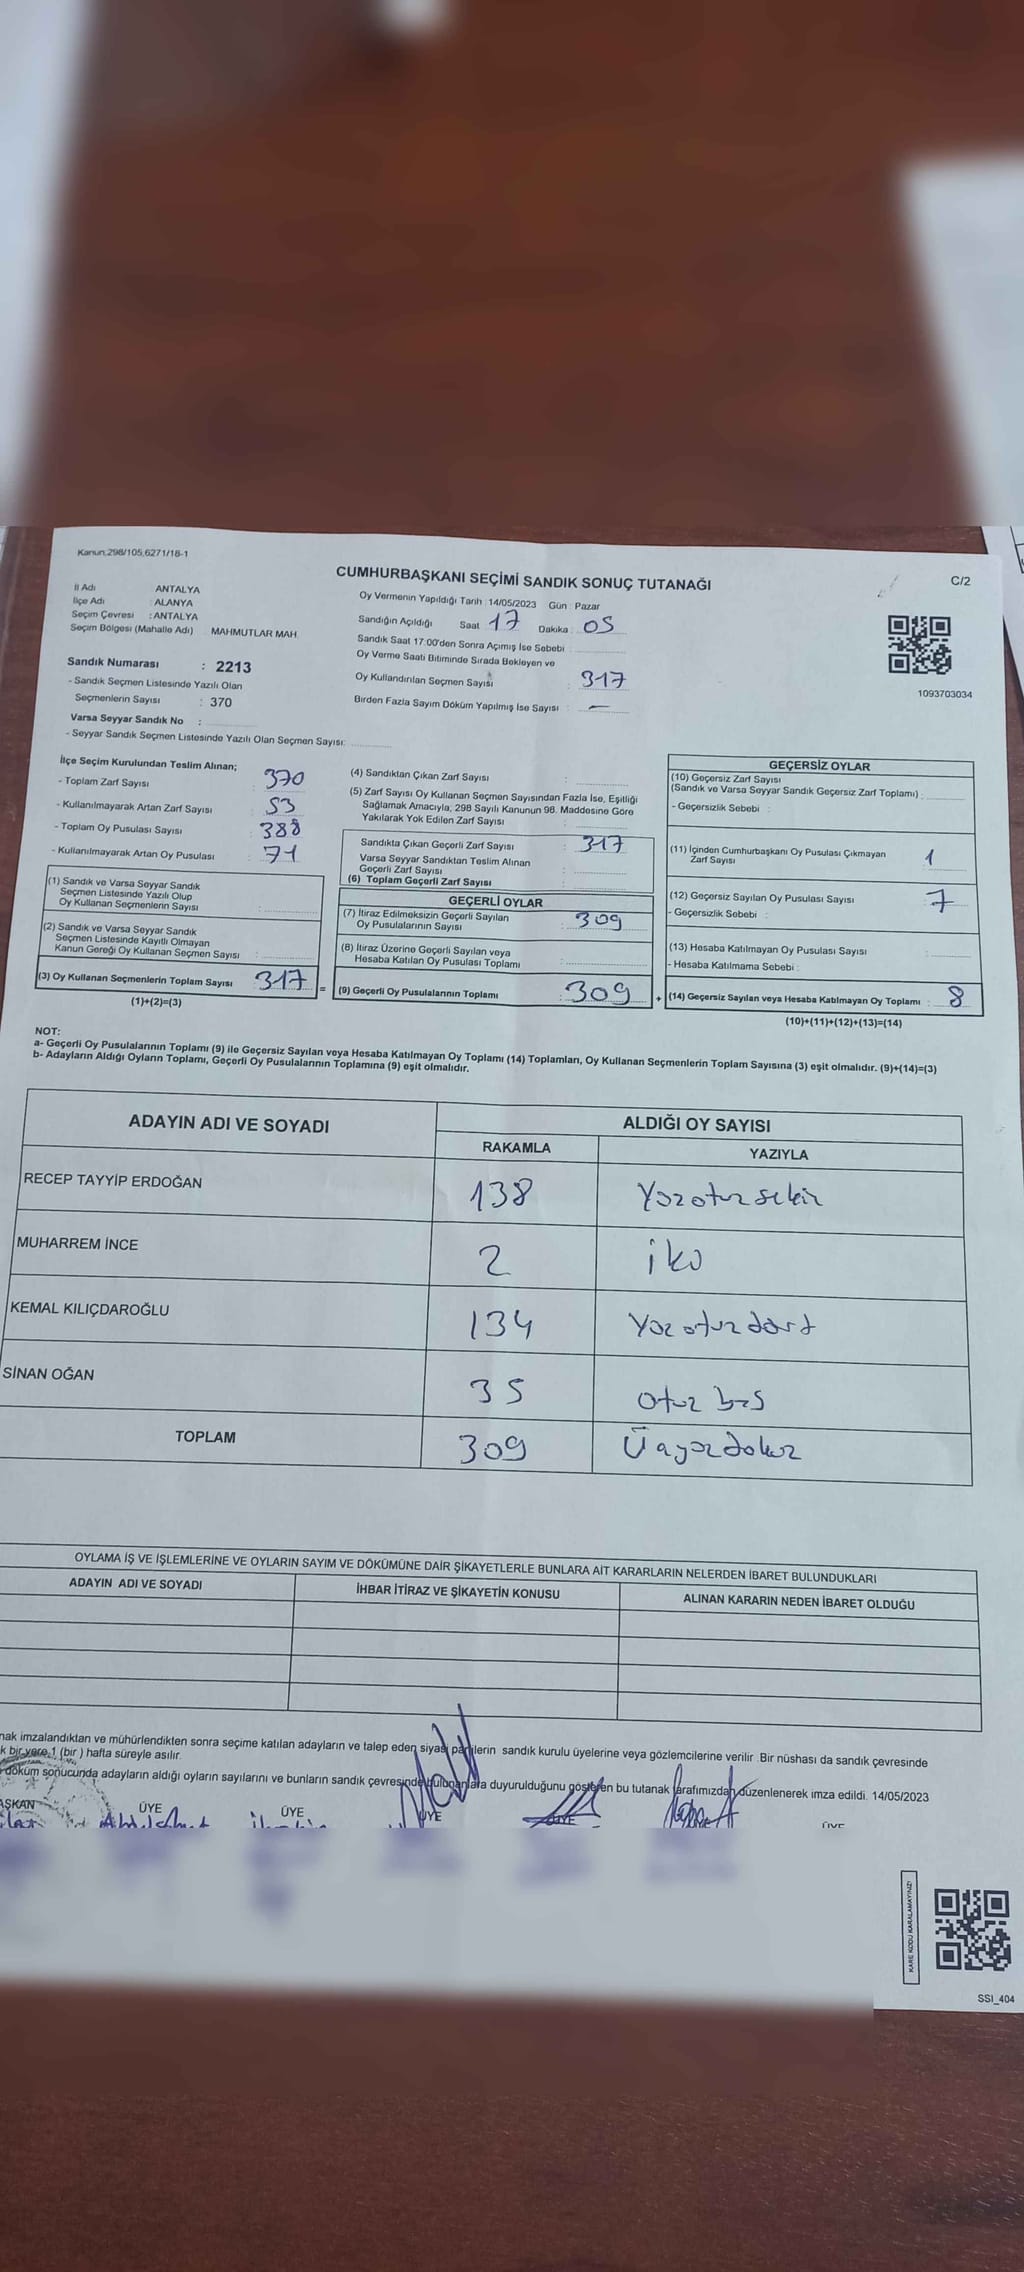 Kanun.298/105,6271/18-1
CUMHURBAŞKANI SEÇİMİ SANDIK SONUÇ TUTANAĞI
C/2
İl Adı ANTALYA
İlçe Adı : ALANYA
Seçim Çevresi : ANTALYA
Seçim Bölgesi (Mahalle Adı) MAHMUTLAR MAH.
Oy Vermenin Yapıldığı Tarih : 14/05/2023 Gün : Pazar
Sandığın Açıldığı Saat 17 Dakika 05
Sandık Saat 17:00'den Sonra Açımış İse Sebebi
Oy Verme Saati Bitiminde Sırada Bekleyen ve
Oy Kullandırılan Seçmen Sayısı : 317
Birden Fazla Sayım Döküm Yapılmış İse Sayısı : -
1093703034
Sandık Numarası : 2213
- Sandık Seçmen Listesinde Yazılı Olan
Seçmenlerin Sayısı : 370
Varsa Seyyar Sandık No :
- Seyyar Sandık Seçmen Listesinde Yazılı Olan Seçmen Sayısı:
İlçe Seçim Kurulundan Teslim Alınan;
- Toplam Zarf Sayısı : 370
- Kullanılmayarak Artan Zarf Sayısı : 53
- Toplam Oy Pusulası Sayısı : 388
- Kullanılmayarak Artan Oy Pusulası : 71
(1) Sandık ve Varsa Seyyar Sandık
Seçmen Listesinde Yazılı Olup
Oy Kullanan Seçmenlerin Sayısı :
(2) Sandık ve Varsa Seyyar Sandık
Seçmen Listesinde Kayıtlı Olmayan
Kanun Gereği Oy Kullanan Seçmen Sayısı :
(3) Oy Kullanan Seçmenlerin Toplam Sayısı : 317 =
(1)+(2)=(3)
(4) Sandıktan Çıkan Zarf Sayısı :
(5) Zarf Sayısı Oy Kullanan Seçmen Sayısından Fazla İse, Eşitliği
Sağlamak Amacıyla, 298 Sayılı Kanunun 98. Maddesine Göre
Yakılarak Yok Edilen Zarf Sayısı :
Sandıkta Çıkan Geçerli Zarf Sayısı : 317
Varsa Seyyar Sandıktan Teslim Alınan
Geçerli Zarf Sayısı :
(6) Toplam Geçerli Zarf Sayısı :
GEÇERLİ OYLAR
(7) İtiraz Edilmeksizin Geçerli Sayılan
Oy Pusulalarının Sayısı : 309
(8) İtiraz Üzerine Geçerli Sayılan veya
Hesaba Katılan Oy Pusulası Toplamı :
(9) Geçerli Oy Pusulalarının Toplamı : 309 +
GEÇERSİZ OYLAR
(10) Geçersiz Zarf Sayısı
(Sandık ve Varsa Seyyar Sandık Geçersiz Zarf Toplamı) :
- Geçersizlik Sebebi :
(11) İçinden Cumhurbaşkanı Oy Pusulası Çıkmayan
Zarf Sayısı : 1
(12) Geçersiz Sayılan Oy Pusulası Sayısı : 7
- Geçersizlik Sebebi :
(13) Hesaba Katılmayan Oy Pusulası Sayısı :
- Hesaba Katılmama Sebebi :
(14) Geçersiz Sayılan veya Hesaba Katılmayan Oy Toplamı : 8
(10)+(11)+(12)+(13)=(14)
NOT:
a- Geçerli Oy Pusulalarının Toplamı (9) ile Geçersiz Sayılan veya Hesaba Katılmayan Oy Toplamı (14) Toplamları, Oy Kullanan Seçmenlerin Toplam Sayısına (3) eşit olmalıdır. (9)+(14)=(3)
b- Adayların Aldığı Oyların Toplamı, Geçerli Oy Pusulalarının Toplamına (9) eşit olmalıdır.
ADAYIN ADI VE SOYADI ALDIĞI OY SAYISI
RAKAMLA YAZIYLA
RECEP TAYYİP ERDOĞAN 138 Yüzotuzsekiz
MUHARREM İNCE 2 iki
KEMAL KILIÇDAROĞLU 134 Yüzotuzdört
SİNAN OĞAN 35 otuzbeş
TOPLAM 309 Üçyüzdokuz
OYLAMA İŞ VE İŞLEMLERİNE VE OYLARIN SAYIM VE DÖKÜMÜNE DAİR ŞİKAYETLERLE BUNLARA AİT KARARLARIN NELERDEN İBARET BULUNDUKLARI
ADAYIN ADI VE SOYADI İHBAR İTİRAZ VE ŞİKAYETİN KONUSU ALINAN KARARIN NEDEN İBARET OLDUĞU
nak imzalandıktan ve mühürlendikten sonra seçime katılan adayların ve talep eden siyasi partilerin sandık kurulu üyelerine veya gözlemcilerine verilir. Bir nüshası da sandık çevresinde
k bir yere 1 (bir ) hafta süreyle asılır.
döküm sonucunda adayların aldığı oyların sayılarını ve bunların sandık çevresinde bulunanlara duyurulduğunu gösteren bu tutanak tarafımızdan düzenlenerek imza edildi. 14/05/2023
AŞKAN ÜYE ÜYE ÜYE ÜYE ÜYE
KARE KODU KARALAMAYINIZ!
SSI_404